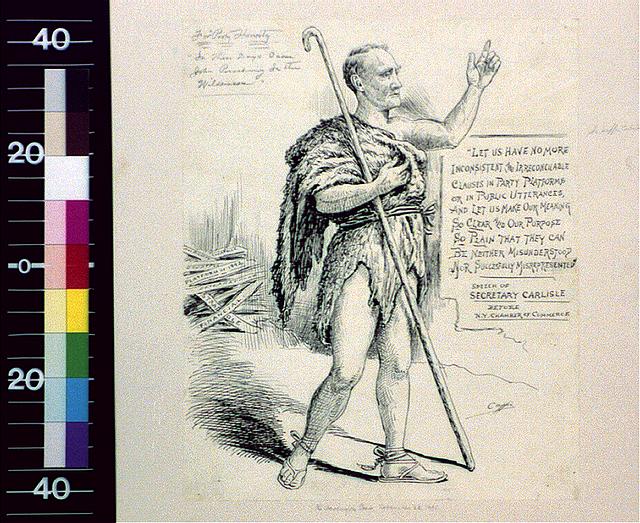 For Party Honesty
In Those Days Came
John Preaching In the
Wilderness"
"LET US HAVE NO MORE
INCONSISTENT AND IRRECONCILABLE
CLAUSES IN PARTY PLATFORMS
OR IN PUBLIC UTTERANCES,
AND LET US MAKE OUR MEANING
SO CLEAR AND OUR PURPOSE
SO PLAIN THAT THEY CAN
BE NEITHER MISUNDERSTOOD
NOR SUCCESSFULLY MISREPRESENTED"
SPEECH OF
SECRETARY CARLISLE
BEFORE
N.Y. CHAMBER OF COMMERCE
40
20
0
20
40